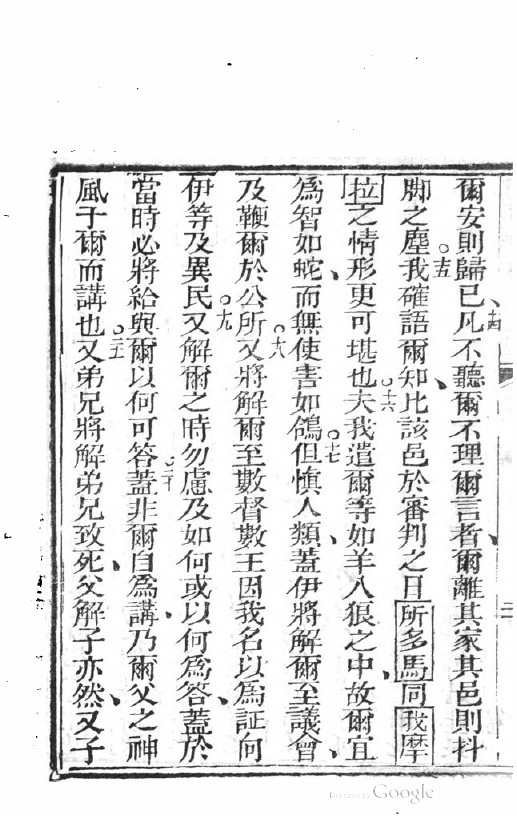 爾安則歸已、十四凡不聽爾不理爾言者、爾離其家其邑則抖
脚之塵○十五我確語爾知、比該邑於審判之日所多馬同我摩
拉之情形更可堪也○十六夫我遣爾等如羊入狼之中、故爾宜
爲智如蛇、而無使害如鴿○十七但慎人類、蓋伊將解爾至議會、
及鞭爾於公所○十八又將解爾至數督數王因我名以爲証向
伊等及異民○十九又解爾之時勿慮及如何或以何爲答、蓋於
當時必將給與爾以何可答○二十蓋非爾自爲講、乃爾父之神
風子爾而講也○二一又弟兄將解弟兄致死、父解子亦然、又子
Digitized by Google